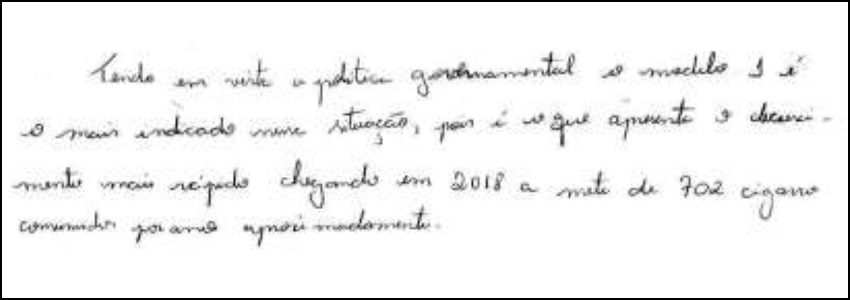 Tendo em vista a política governamental o modelo 1 é
o mais indicado nessa situação, pois é o que apresenta o decresci-
mento mais rápido chegando em 2018 a meta de 702 cigarro
consumidos por ano aproximadamente.